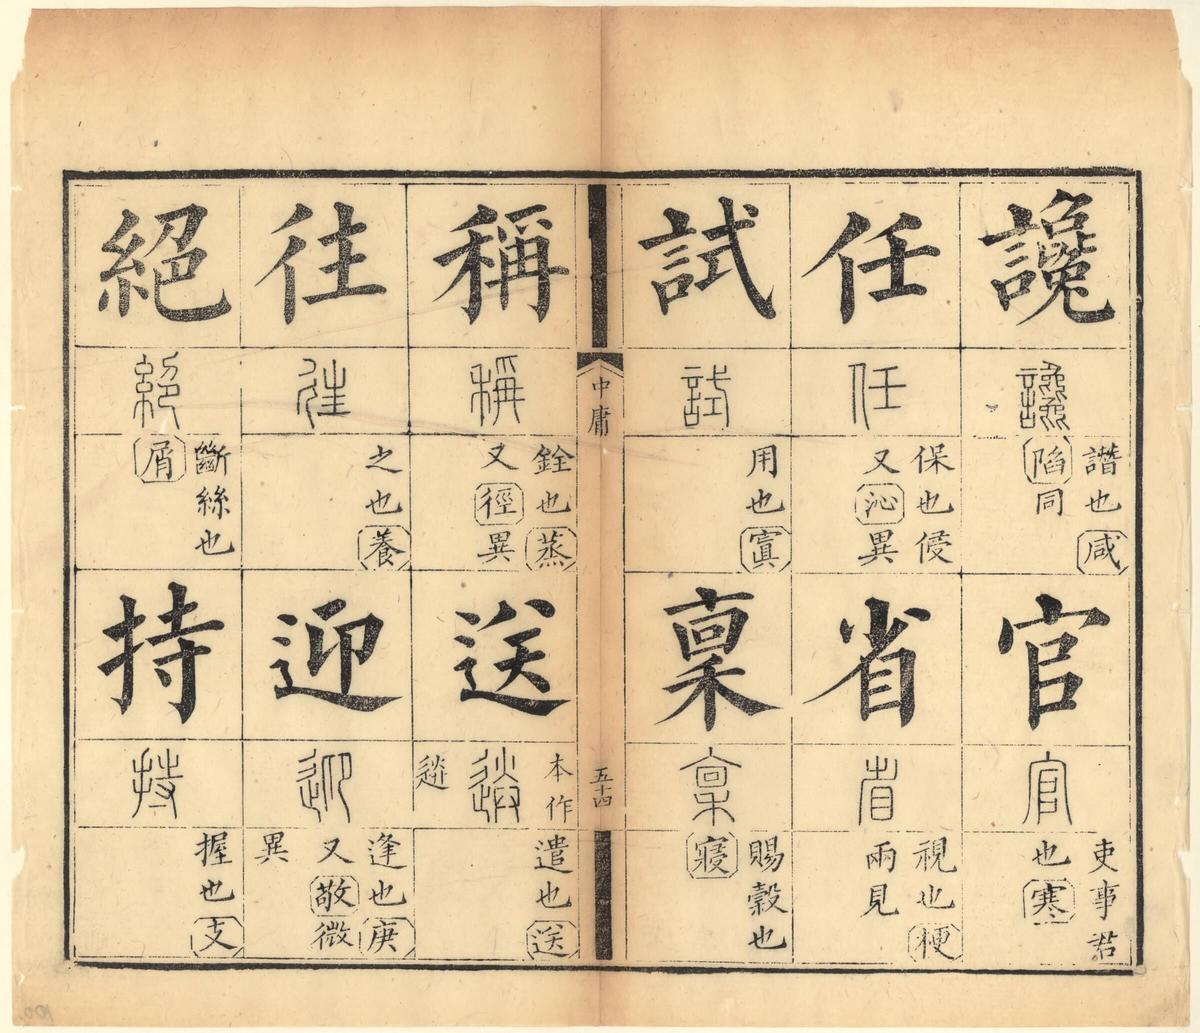 讒
讒
譖也咸
陷同
官
官
吏事君
也寒
任
任
保也侵
又沁異
省
省
視也梗
兩見
試
試
用也寘
稟
稟
賜穀也
寢
中庸
五十四
稱
稱
銓也蒸
又徑異
送
本作
送
遣也送
往
往
之也養
迎
迎
逢也庚
又敬微
異
絕
絕
斷絲也
屑
持
持
握也支